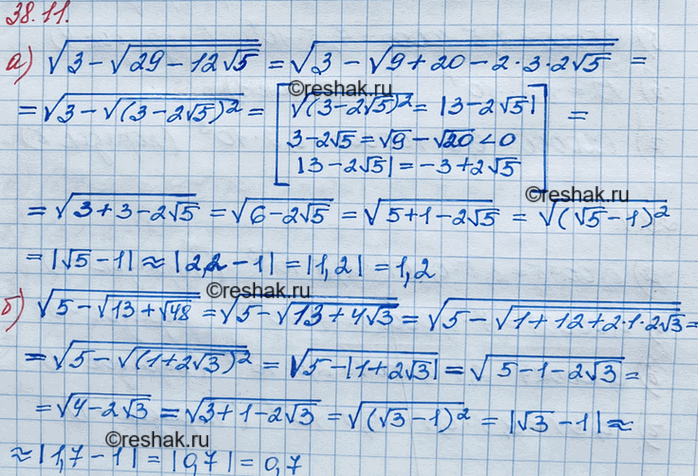 38.11.
а) √(3 - √(29 - 12√5)) = √(3 - √(9 + 20 - 2·3·2√5)) =
©reshak.ru
= √(3 - √((3 - 2√5)²)) = [√((3 - 2√5)²) = |3 - 2√5|
3 - 2√5 = √9 - √20 < 0
|3 - 2√5| = -3 + 2√5] =
©reshak.ru
= √(3 + 3 - 2√5) = √(6 - 2√5) = √(5 + 1 - 2√5) = √((√5 - 1)²)
= |√5 - 1| ≈ |2,2 - 1| = |1,2| = 1,2
©reshak.ru
б) √(5 - √(13 + √48)) = √(5 - √(13 + 4√3)) = √(5 - √(1 + 12 + 2·1·2√3)) =
©reshak.ru
= √(5 - √((1 + 2√3)²)) = √(5 - |1 + 2√3|) = √(5 - 1 - 2√3) =
= √(4 - 2√3) = √(3 + 1 - 2√3) = √((√3 - 1)²) = |√3 - 1| ≈
©reshak.ru
≈ |1,7 - 1| = |0,7| = 0,7